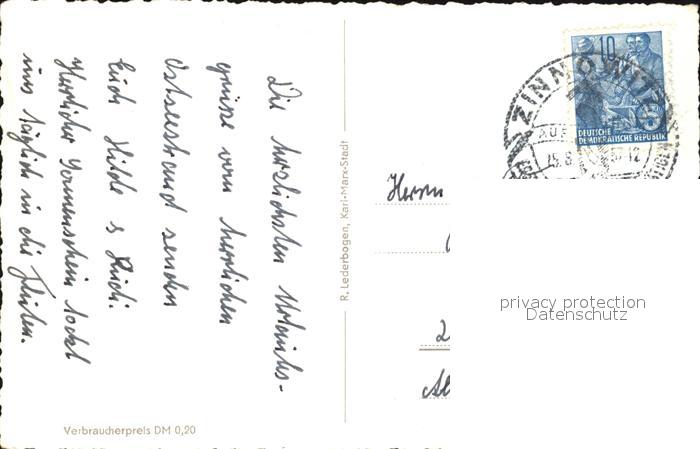 Die herzlichsten Urlaubs-
grüße vom herrlichen
Ostseestrand senden
Euch Hilde & Rudi.
Herrlicher Sonnenschein lockt
uns täglich in die Fluten.
Verbraucherpreis DM 0,20
R. Lederbogen, Karl-Marx-Stadt
Herrn
10
DEUTSCHE
DEMOKRATISCHE REPUBLIK
ZINNOWITZ
privacy protection
Datenschutz